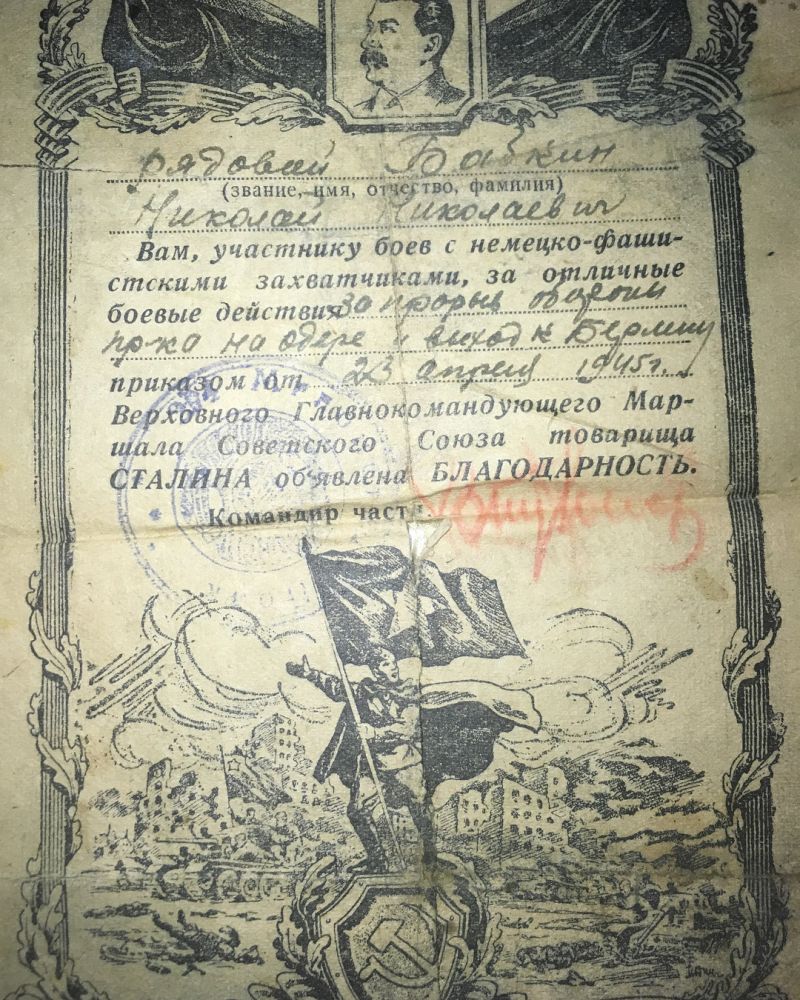 рядовой Бабкин
(звание, имя, отчество, фамилия)
Николай Николаевич
Вам, участнику боев с немецко-фаши-
стскими захватчиками, за отличные
боевые действия за прорыв обороны
пр-ка на одере и выход к Берлину
приказом от 23 апреля 1945г.
Верховного Главнокомандующего Мар-
шала Советского Союза товарища
СТАЛИНА об'явлена БЛАГОДАРНОСТЬ.
Командир части